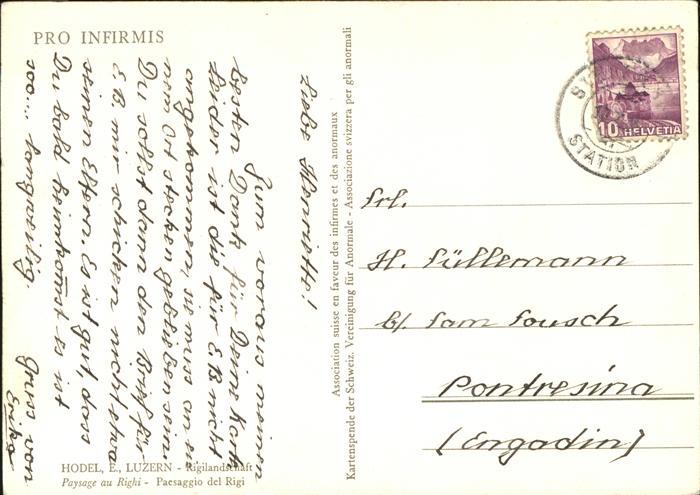 PRO INFIRMIS
Liebe Henriette!
Zum voraus meinen
besten Dank für Deine Karte
Leider ist die für E.B. nicht
angekommen, sie muss an ei-
nem Ort stecken geblieben sein.
Du sollst dann den Brief für
E.B. mir schicken nicht etwa
seinen Eltern. Es ist gut, dass
Du bald heimkommst es ist
soo... langweilig
Gruss von
Erika
HODEL, E., LUZERN - Rigilandschaft
Paysage au Righi - Paesaggio del Rigi
Association suisse en faveur des infirmes et des anormaux
Kartenspende der Schweiz. Vereinigung für Anormale - Associazione svizzera per gli anormali
10 HELVETIA
STATION
Frl.
H. Füllemann
b/. Fam Fousch
Pontresina
(Engadin)